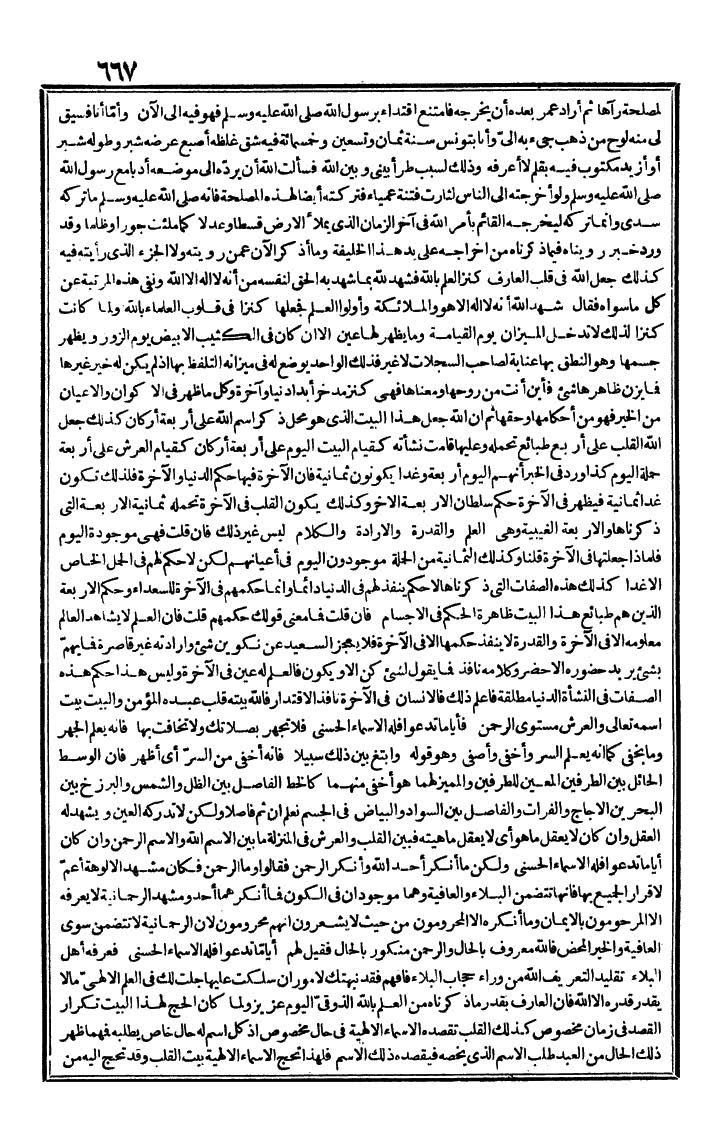 ٦٦٧
لمصلحة رآها ثم أراد عمر بعده أن يخرجه فامتنع اقتداء برسول الله صلى الله عليه وسلم فهو فيه الى الآن وأما أنا فسيق
لى منه لوح من ذهب جىء به الىّ وأنا بتونس سنة ثمان وتسعين وخمسمائة فيه شق غلظه أصبع عرضه شبر وطوله شبر
أو أزيد مكتوب فيه بقلم لا أعرفه وذلك لسبب طرأ بينى و بين الله فسألت الله أن يردّه الى موضعه أدبا مع رسول الله
صلى الله عليه وسلم ولو أخرجته الى الناس لثارت فتنة عمياء فتركته أيضا لهذه المصلحة فانه صلى الله عليه وسلم ما تركه
سدى وانما تركه ليخرجه القائم بأمر الله فى آخر الزمان الذى يملأ الارض قسطا وعدلا كما ملئت جورا وظلما وقد
ورد خبر رويناه فيما ذكرناه من اخراجه على يد هذا الخليفة وما أذكر الآن عمن رويته ولا الجزء الذى رأيته فيه
كذلك جعل الله فى قلب العارف كنز العلم بالله فشهد لله بما شهد به الحق لنفسه من أنه لا اله الا الله ونفى هذه المرتبة عن
كل ما سواه فقال شهد الله أنه لا اله الا هو والملائكة وأولوا العلم فجعلها كنزا فى قلوب العلماء بالله ولما كانت
كنزا لذلك لا تدخل الميزان يوم القيامة وما يظهر لها عين الا ان كان فى الكثيب الابيض يوم الزور و يظهر
جسمها وهو النطق بها عناية لصاحب السجلات لا غير فذلك الواحد يوضع له فى ميزانه التلفظ بها اذ لم يكن له خير غيرها
فما يزن ظاهرها شئ فأين أنت من روحها ومعناها فهى كنز مدخر أبدا دنيا وآخرة وكل ما ظهر فى الاكوان والاعيان
من الخير فهو من أحكامها وحقها ثم ان الله جعل هذا البيت الذى هو محل ذكر اسم الله على أربعة أركان كذلك جعل
الله القلب على أربع طبائع تحمله وعليها قامت نشأته كقيام البيت اليوم على أربعة أركان كقيام العرش على أربعة
حملة اليوم كذا ورد فى الخبر أنهم اليوم أربعة وغدا يكونون ثمانية فان الآخرة فيها حكم الدنيا والآخرة فلذلك تكون
غدا ثمانية فيظهر فى الآخرة حكم سلطان الاربعة الاخر وكذلك يكون القلب فى الآخرة تحمله ثمانية الاربعة التى
ذكرناها والاربعة الغيبية وهى العلم والقدرة والارادة والكلام ليس غير ذلك فان قلت فهى موجودة اليوم
فلماذا جعلتها فى الآخرة قلنا وكذلك الثمانية من الحملة موجودون اليوم فى أعيانهم لكن لا حكم لهم فى الحمل الخاص
الا غدا كذلك هذه الصفات التى ذكرناها لا حكم ينفذ لهم فى الدنيا دائما وانما حكمهم فى الآخرة للسعداء وحكم الاربعة
الذين هم طبائع هذا البيت ظاهرة الحكم فى الاجسام فان قلت فما معنى قولك حكمهم قلت فان العلم لا يشاهد العالم
معلومه الا فى الآخرة والقدرة لا ينفذ حكمها الا فى الآخرة فلا يعجز السعيد عن تكوين شئ وارادته غير قاصرة فما يهمّ
بشئ يريد حضوره الا حضر وكلامه نافذ فما يقول لشئ كن الا و يكون فالعلم له عين فى الآخرة وليس هذا حكم هذه
الصفات فى النشأة الدنيا مطلقة فاعلم ذلك فالانسان فى الآخرة نافذ الاقتدار فالله بيته قلب عبده المؤمن والبيت بيت
اسمه تعالى والعرش مستوى الرحمن فأياما تدعوا فله الاسماء الحسنى فلا تجهر بصلاتك ولا تخافت بها فانه يعلم الجهر
وما يخفى كما انه يعلم السر وأخفى وأصفى وهو قوله وابتغ بين ذلك سبيلا فانه أخفى من السرّ أى أظهر فان الوسط
الحائل بين الطرفين المعين للطرفين والمميز لهما هو أخفى منهما كالخط الفاصل بين الظل والشمس والبرزخ بين
البحرين الاجاج والفرات والفاصل بين السواد والبياض فى الجسم نعلم ان ثم فاصلا ولكن لا تدركه العين و يشهد له
العقل وان كان لا يعقل ما هو أى لا يعقل ماهيته فبين القلب والعرش فى المنزلة ما بين الاسم الله والاسم الرحمن وان كان
أياما تدعوا فله الاسماء الحسنى ولكن ما أنكر أحد الله وأنكر الرحمن فقالوا وما الرحمن فكان مشهد الالوهة أعمّ
لاقرار الجميع بها فانها تتضمن البلاء والعافية وهما موجودان فى الكون فما أنكرهما أحد ومشهد الرحمانية لا يعرفه
الا المرحومون بالايمان وما أنكره الا المحرومون من حيث لا يشعرون انهم محرومون لان الرحمانية لا تتضمن سوى
العافية والخير المحض فالله معروف بالحال والرحمن منكور بالحال فقيل لهم أياما تدعوا فله الاسماء الحسنى فعرفه أهل
البلاء تقليد التعريف الله من وراء حجاب البلاء فافهم فقد نبهتك لامور ان سلكت عليها جلت لك فى العلم الالهىّ ما لا
يقدر قدره الا الله فان العارف بقدر ما ذكرناه من العلم بالله الذوقىّ اليوم عزيز ولما كان الحج لهذا البيت تكرار
القصد فى زمان مخصوص كذلك القلب تقصده الاسماء الالهية فى حال مخصوص اذ كل اسم له حال خاص يطلبه فهما ظهر
ذلك الحال من العبد طلب الاسم الذى يخصه فيقصده ذلك الاسم فلهذا تحج الاسماء الالهية بيت القلب وقد تحج اليه من